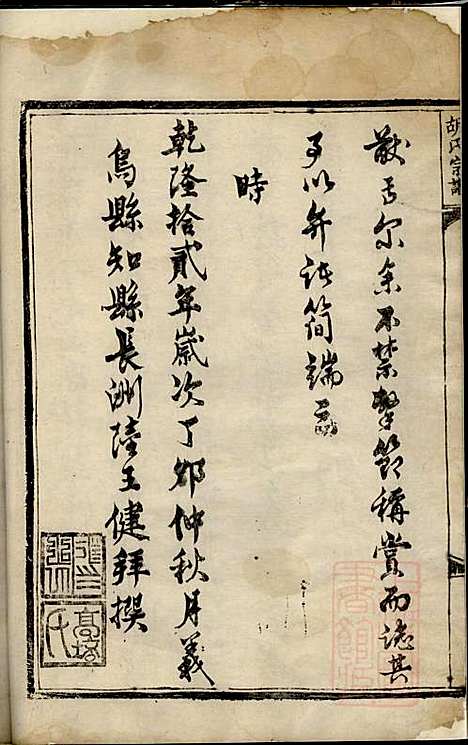 胡氏宗譜
猷云尔余不禁擊節稱賞而誌其
事以弁諸簡端云
時
乾隆拾貳年歲次丁卯仲秋月義
烏縣知縣長洲陸王健拜撰